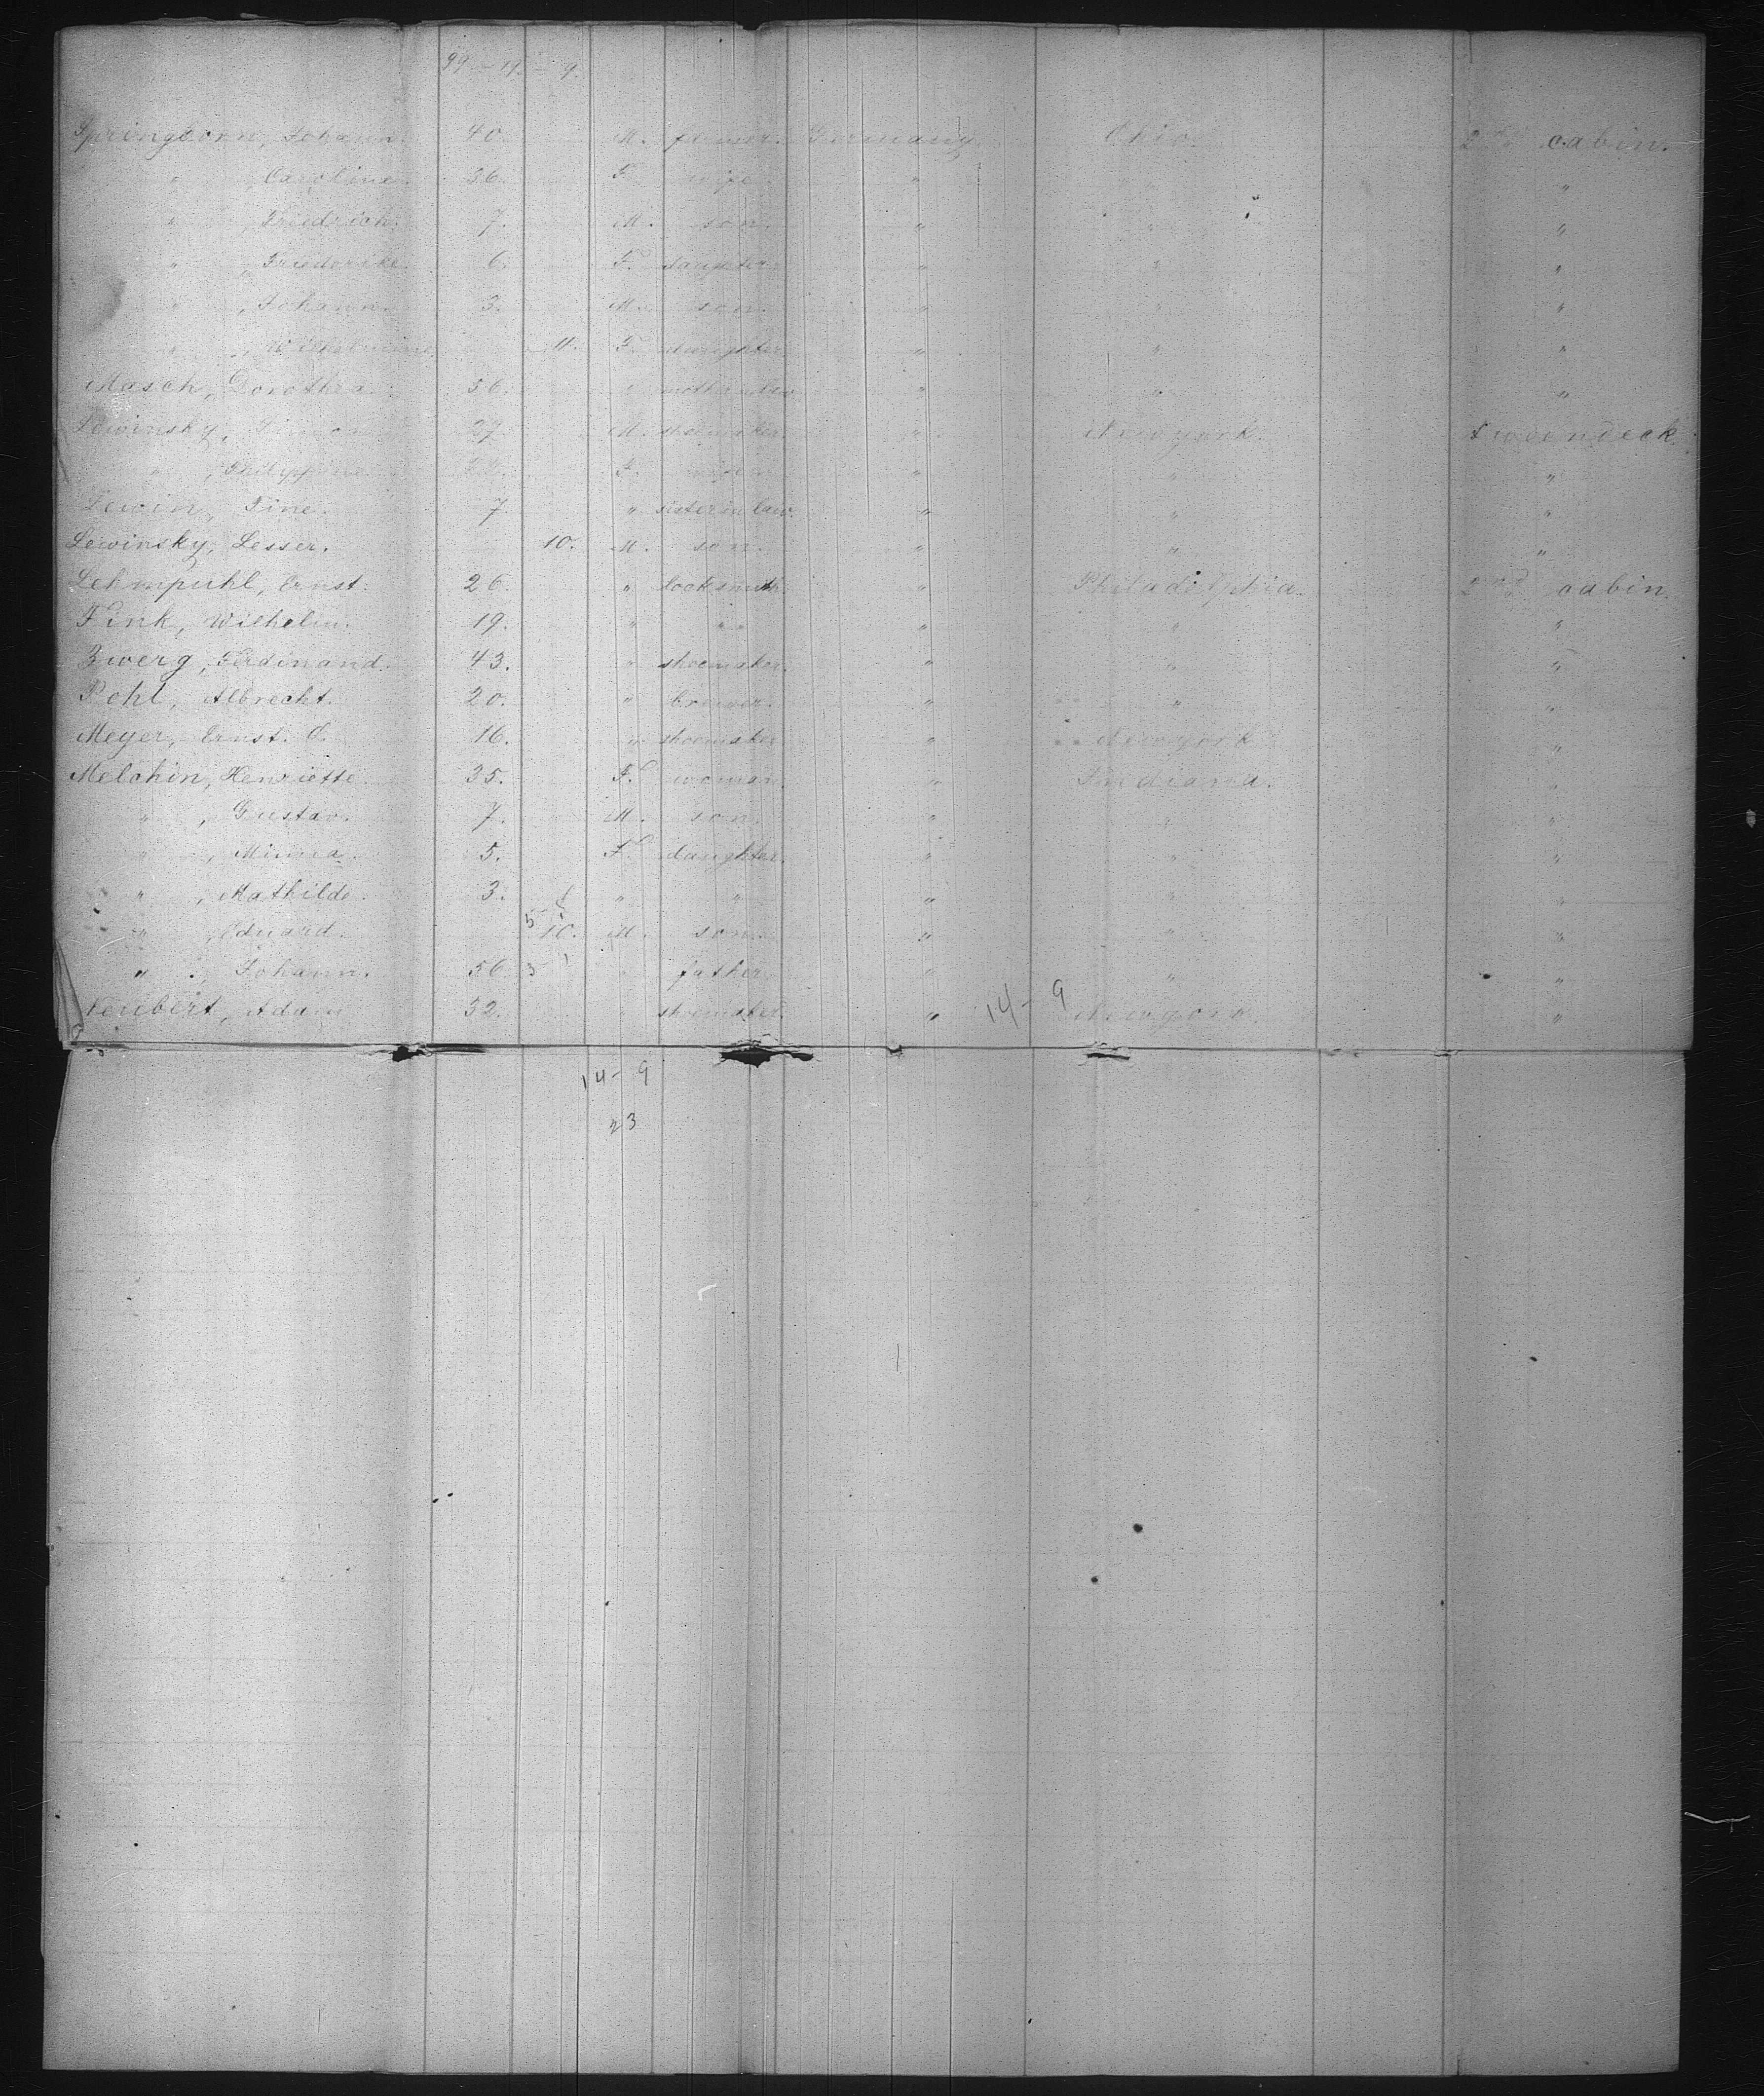 99 - 14 - 9.
Springborn, Johann. 40. M. farmer. Germany. Ohio. 2nd cabin.
" , Caroline. 36. F. wife. " " "
" , Friedrich. 7. M. son. " " "
" , Friederike. 6. F. daughter. " " "
" , Johann. 3. M. son. " " "
" , Wilhelmine. 11. F. daughter. " " "
Masch, Dorothea. 56. " " " "
Lewinsky, Simon. 27. M. shoemaker. " Newyork. Twdendeck.
" , Philippine. 22. F. wife. " " "
Lewin, Fine. 7. " sister in law. " " "
Lewinsky, Lesser. 10. M. son. " " "
Lehmpuhl, Ernst. 26. " locksmith. " Philadelphia. 2nd cabin.
Fink, Wilhelm. 19. " " " " "
Zwerg, Ferdinand. 43. " shoemaker. " " "
Pohl, Albrecht. 20. " brewer. " " "
Meyer, Ernst. O. 16. " shoemaker. " Newyork. "
Melchin, Henriette. 35. F. woman. " Indiana. "
" , Gustav. 7. M. son. " " "
" , Minna. 5. F. daughter. " " "
" , Mathilde. 3. " " " " "
" , Eduard. 5 10. M. son. " " "
" , Johann. 56. 5 1 " father. " " "
Neubert, Adam. 32. " shoemaker. " 14-9 Newyork. "
14- 9
23